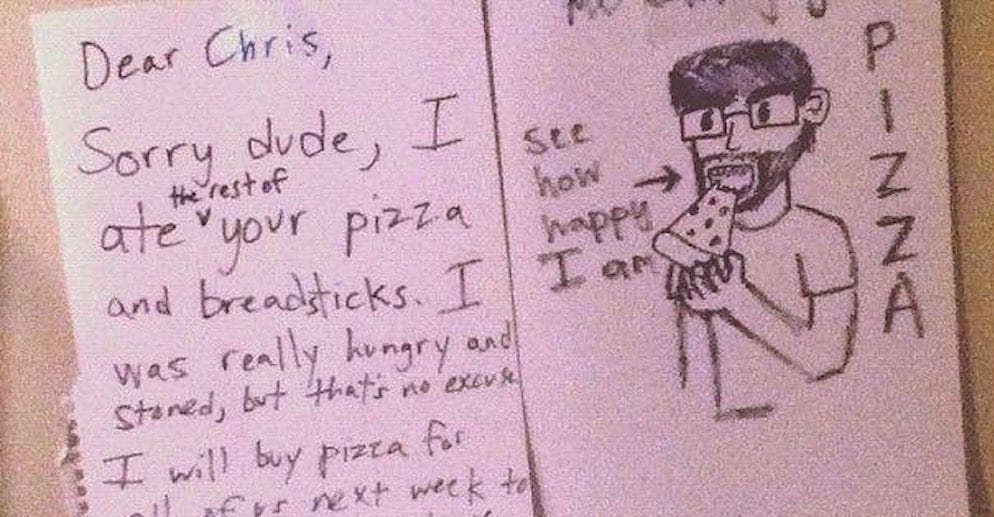 Dear Chris,
Sorry dude, I
the rest of
ate your pizza
and breadsticks. I
was really hungry and
stoned, but that's no excuse
I will buy pizza for
all of us next week to
See
how
happy
I am
PIZZA